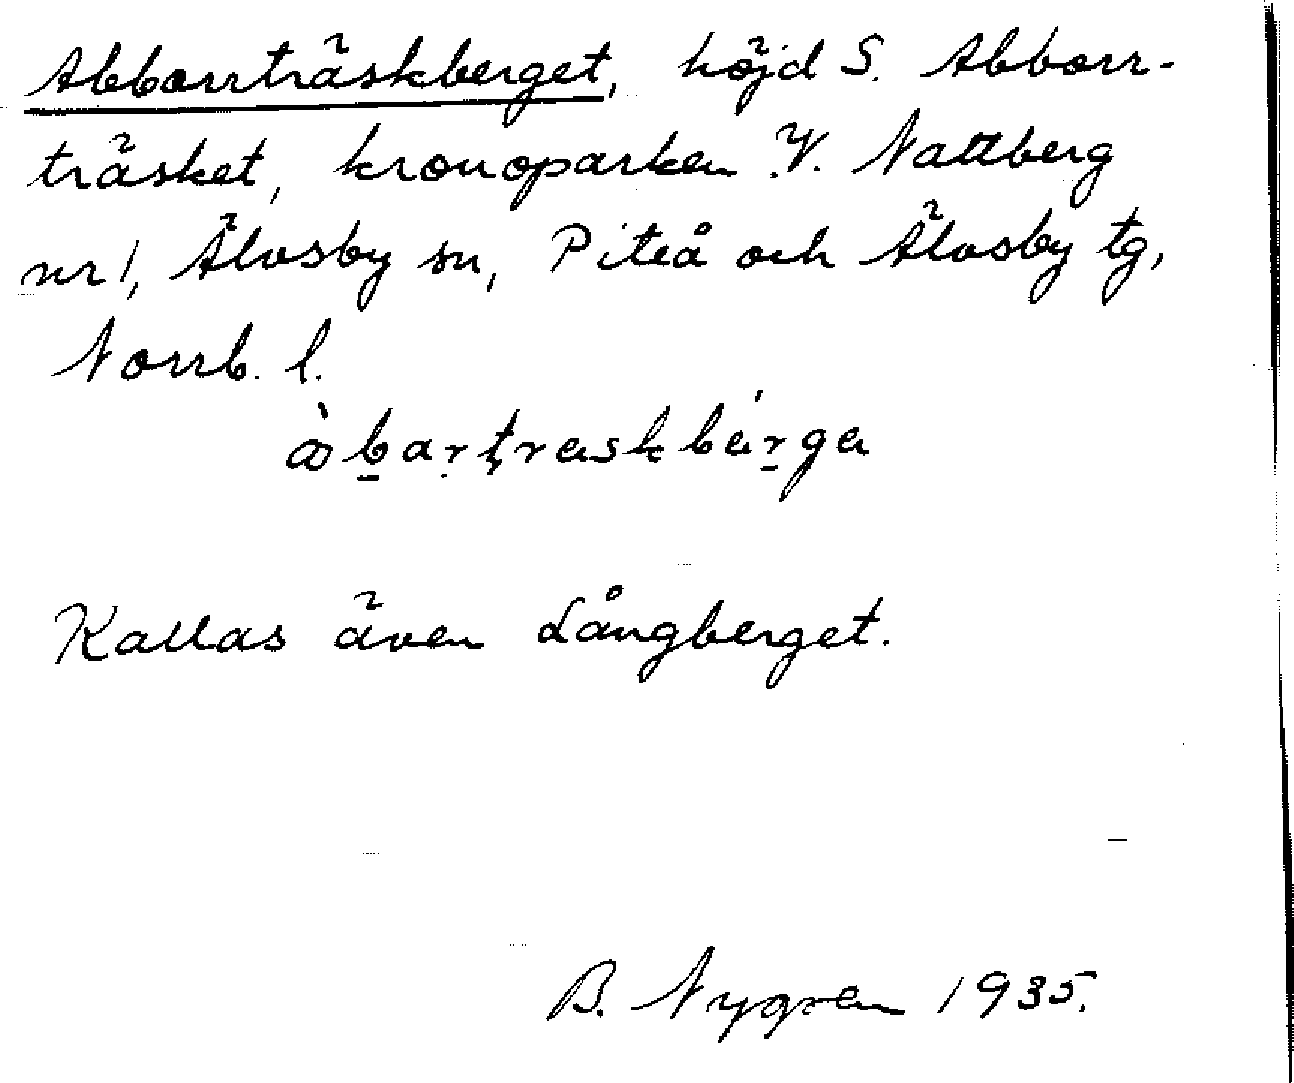 Abborrträskberget, höjd S. Abborr-
träsket, kronoparken V. Nattberg
nr 1, Älvsby sn, Piteå och Älvsby tg,
Norrb. l.
Kallas även Långberget.
B. Nygren 1935.